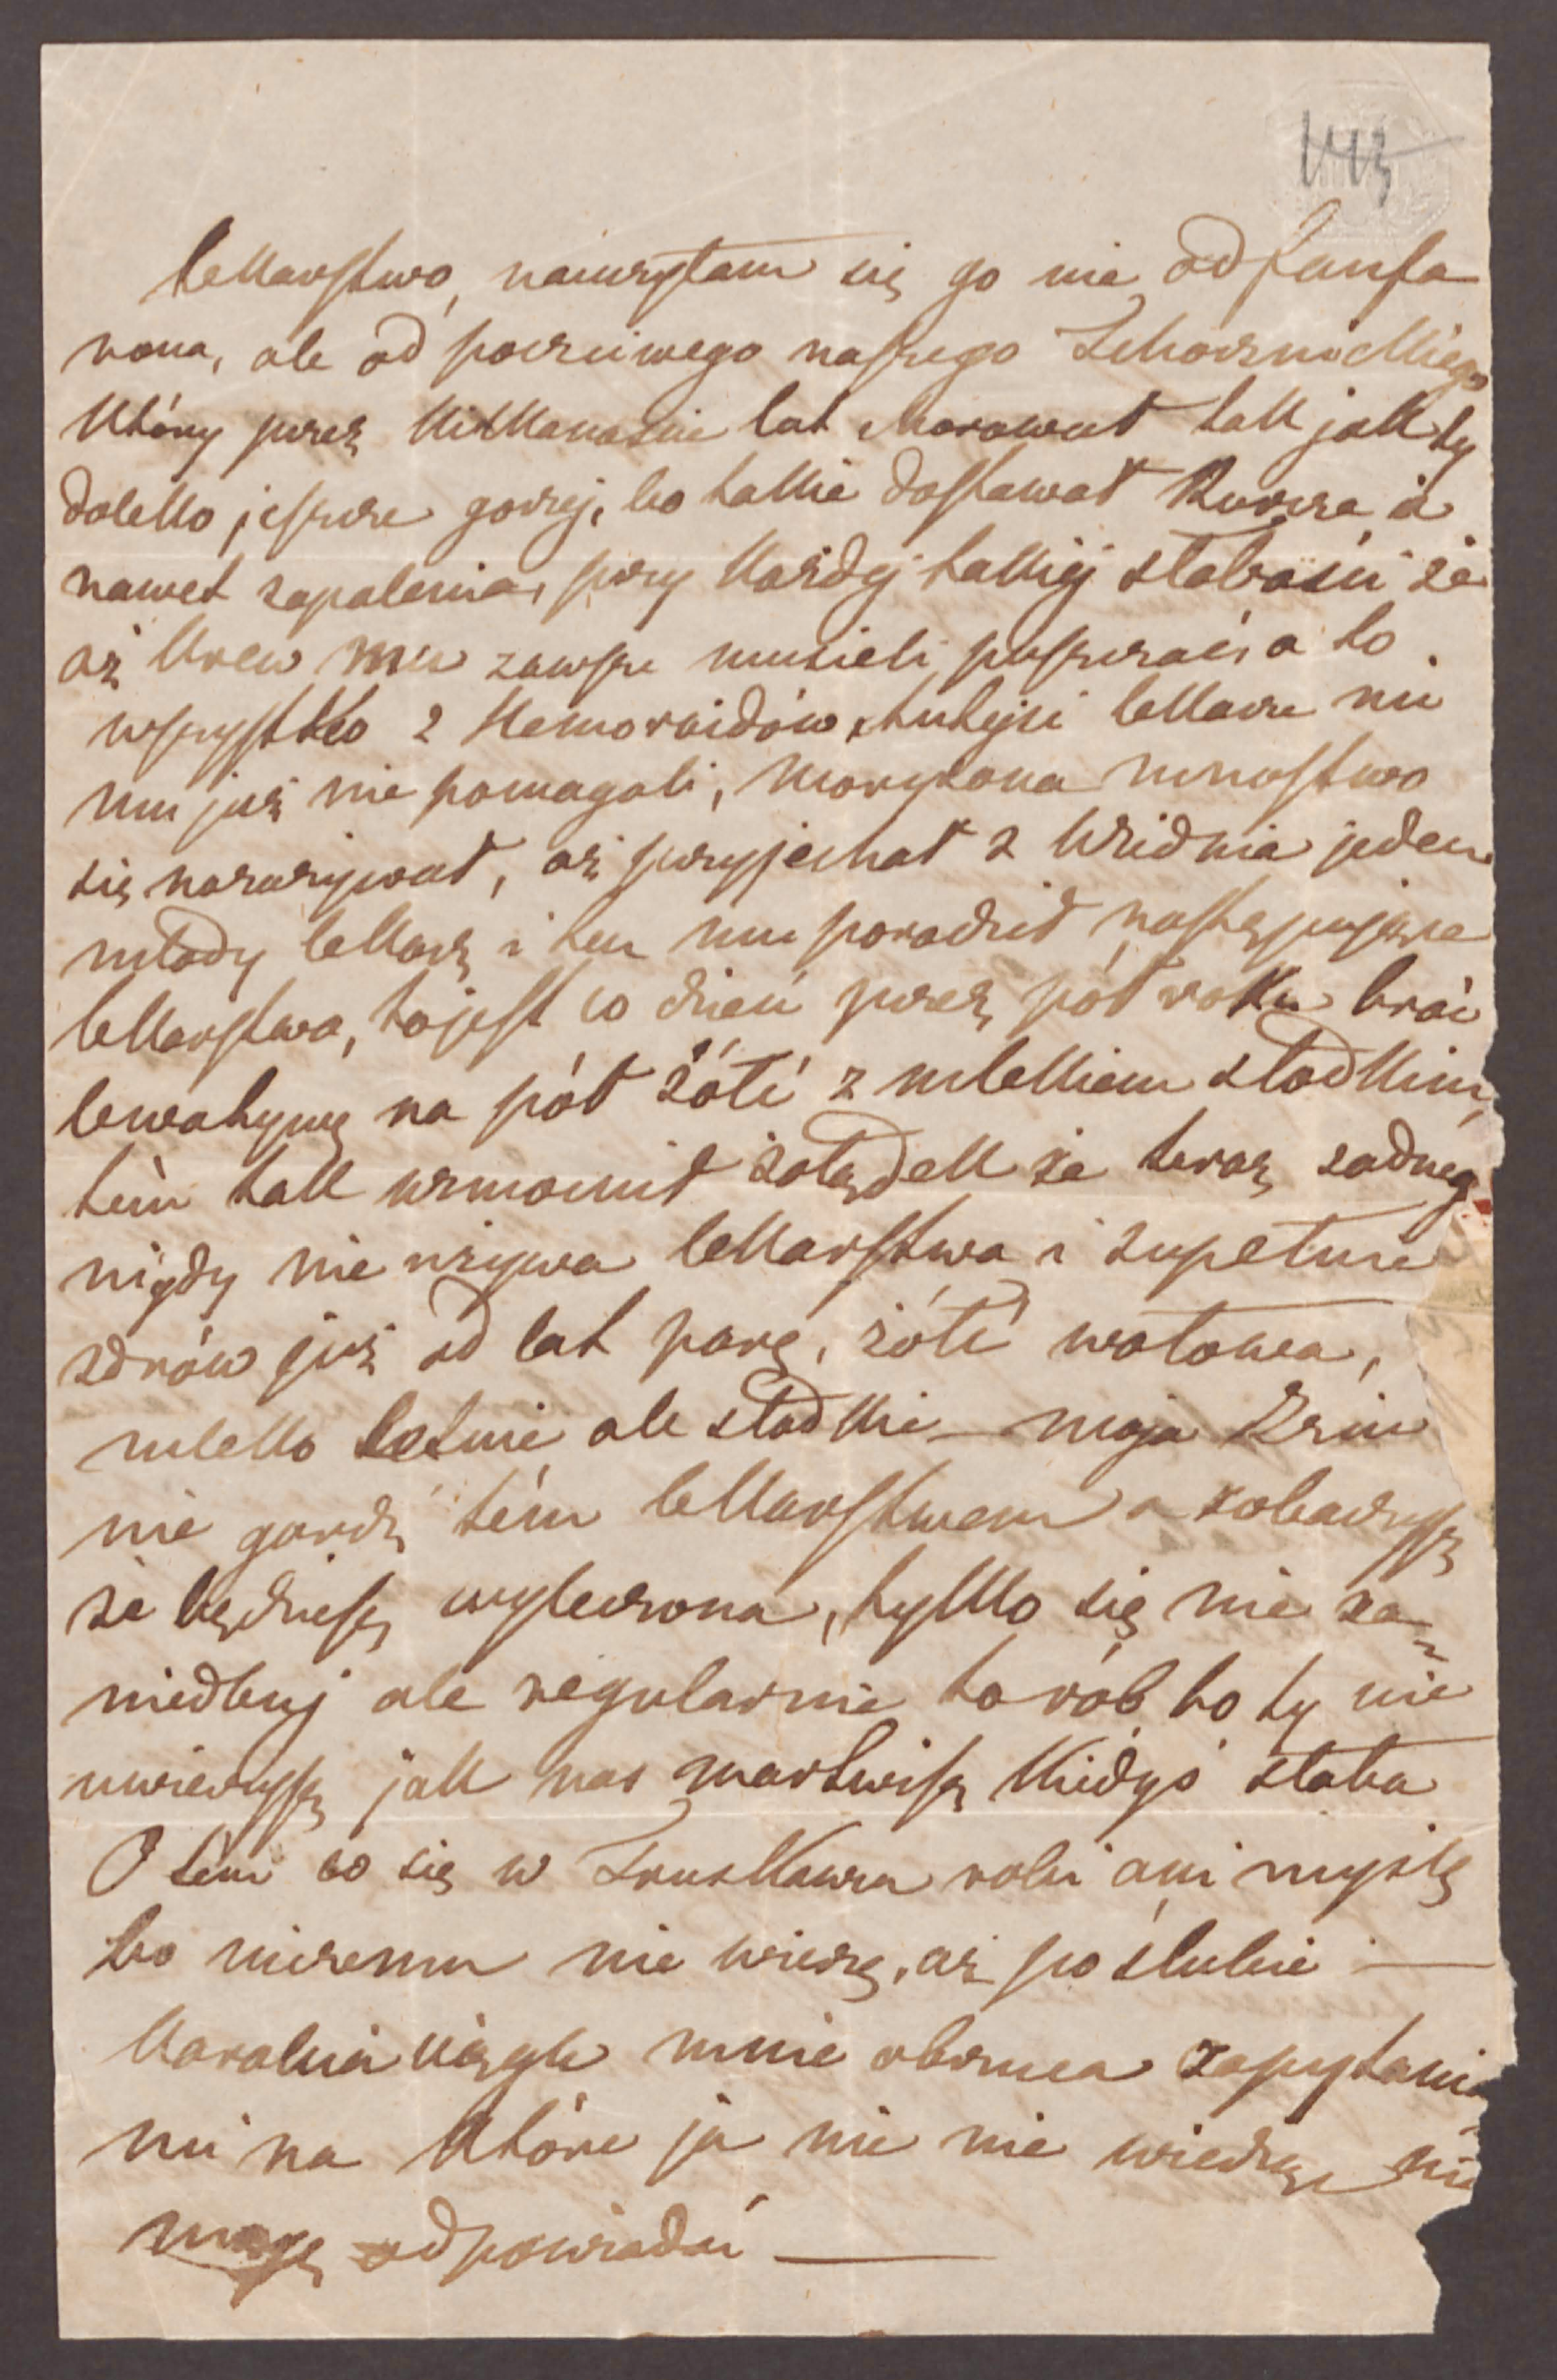 143
lekarstwo, nauczyłam się go nie od fanfa
rona, ale od poczciwego naszego
który przez kilkanaście lat chorował tak jak ty
daleko jeszcze gorzej, bo takie dostawał kurcze i
nawet zapalenia, przy każdej takiéj słabości że
aż krew mu zawsze musieli puszczać, a to
wszystko z Hemoroidów, tutejsi lekarze nic
mu już nie pomagali, Morysona mnóstwo
się nazażywał, aż przyjechał z Wiednia jeden
młody lekarz i ten mu poradził następujące
lekarstwo, to jest co dzień przez pół roku brać
lewatywę na pół żółć z mlekiem słodkim,
tém tak wzmocnił żołądek że teraz żadneg
nigdy nie używa lekarstwa i zupełnie
zdrów już od lat parę, żółć wołowa,
mleko letnie ale słodkie — moja
nie gardź tém lekarstwem a zobaczysz
że będziesz wyleczona, tylko się nie za=
niedbuj ale regularnie to rób bo ty nie
uwierzysz jak nas martwisz kiedyś słaba
O tém co się w Truskawcu robi ani myślę
bo niczemu nie wierzę, aż po ślubie —
Karolcia ciągle mnie obrzuca zapytania=
mi na które ja nic nie wiedząc nie
mogę odpowiadać —